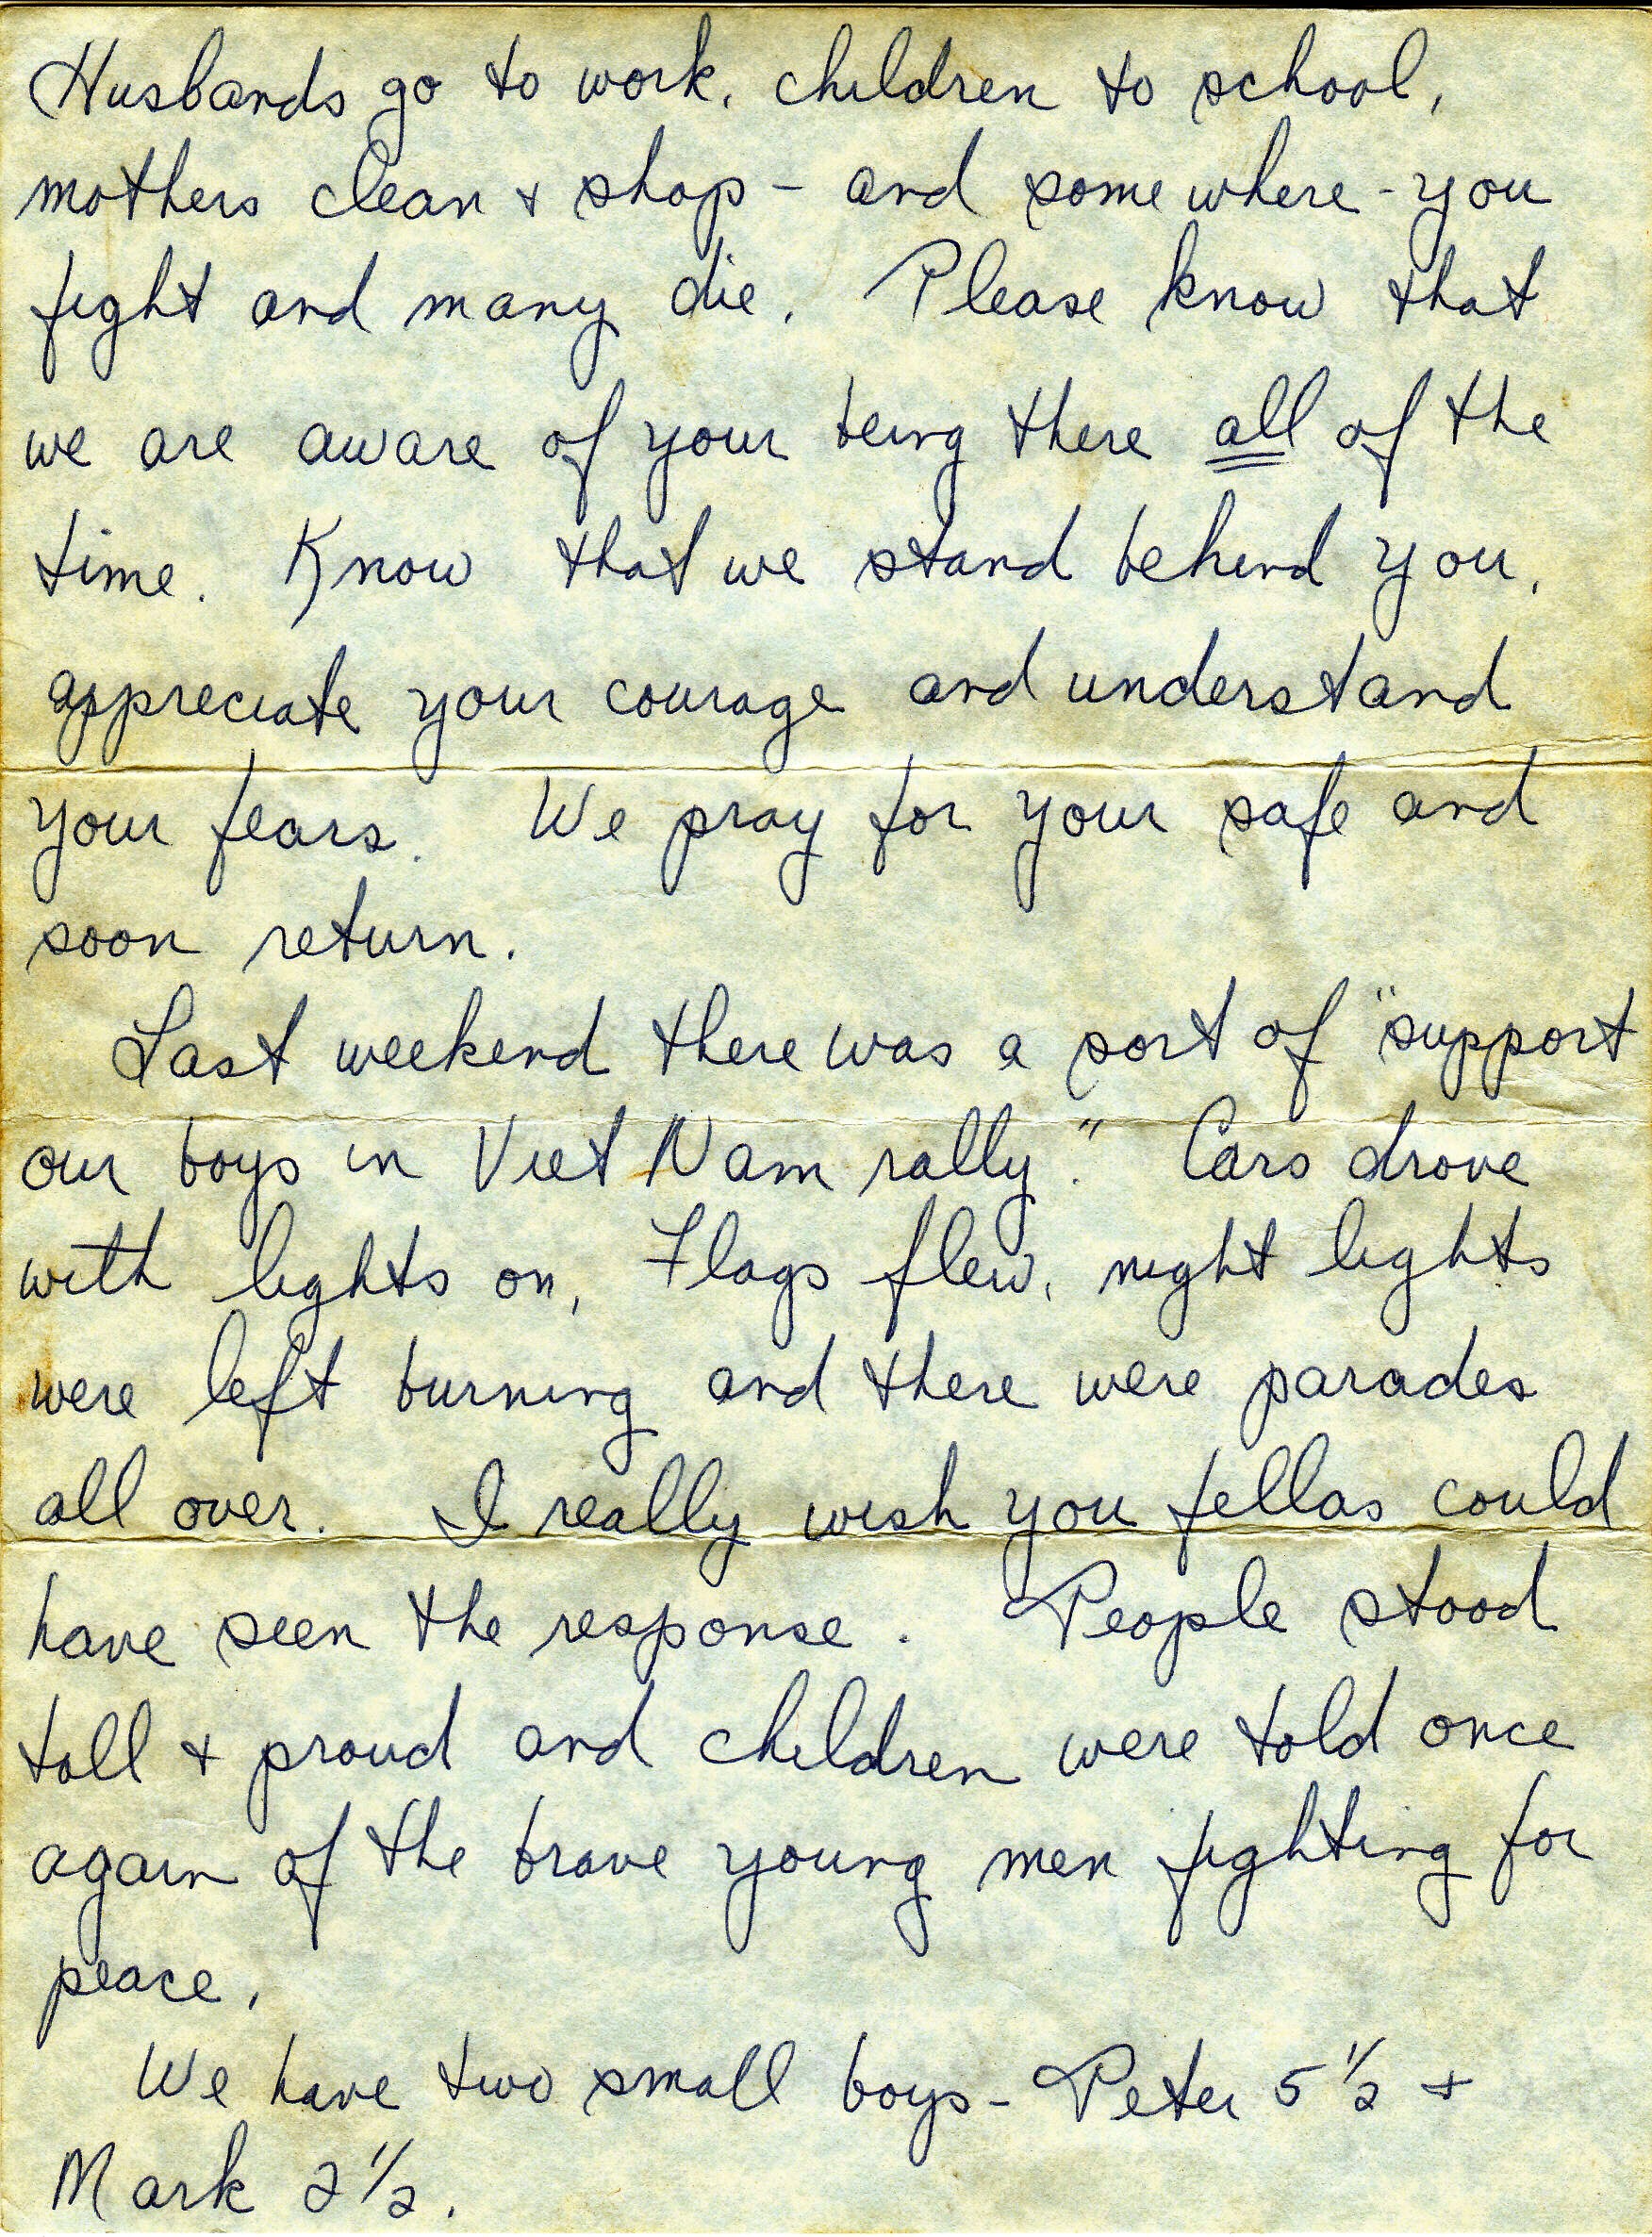 Husbands go to work, children to school,
mothers clean + shop - and somewhere - you
fight and many die. Please know that
we are aware of your being there all of the
time. Know that we stand behind you,
appreciate your courage and understand
your fears. We pray for your safe and
soon return.
Last weekend there was a sort of "support
our boys in Viet Nam rally." Cars drove
with lights on, Flags flew, night lights
were left burning and there were parades
all over. I really wish you fellas could
have seen the response. People stood
tall + proud and children were told once
again of the brave young men fighting for
peace.
We have two small boys - Peter 5 1/2 +
Mark 2 1/2.